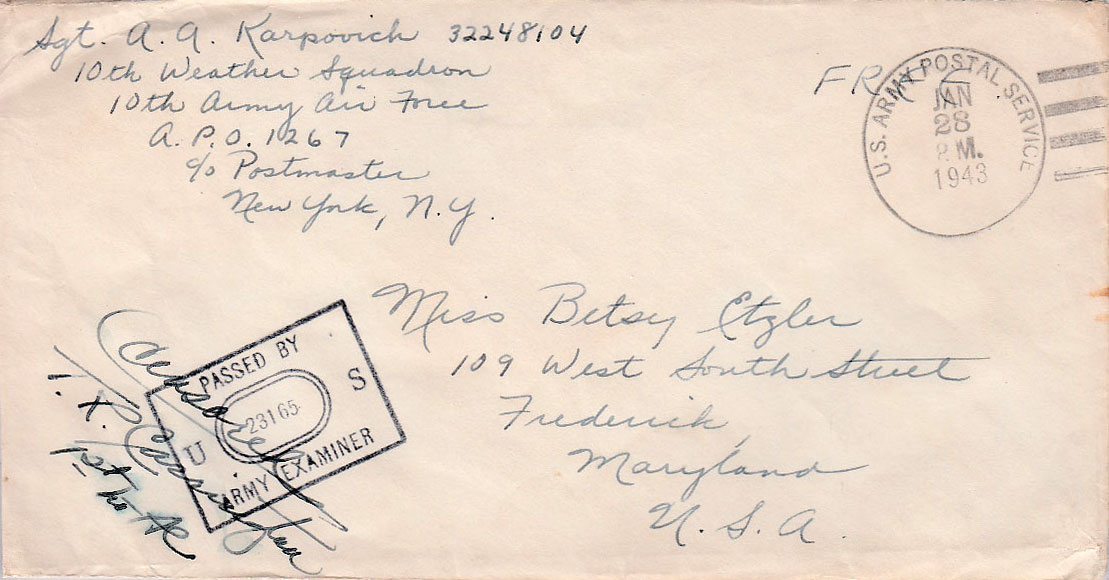 Sgt. A. A. Karpovich 32248104
10th Weather Squadron
10th Army Air Force
A. P. O. 1267
c/o Postmaster
New York, N.Y.
FREE
U.S. ARMY POSTAL SERVICE
JAN
28
M.
1943
Miss Betsy Etzler
109 West South Street
Frederick,
Maryland
U. S. A.
PASSED BY
U 23165 S
ARMY EXAMINER
T. R. Carrington
1st Lt AC